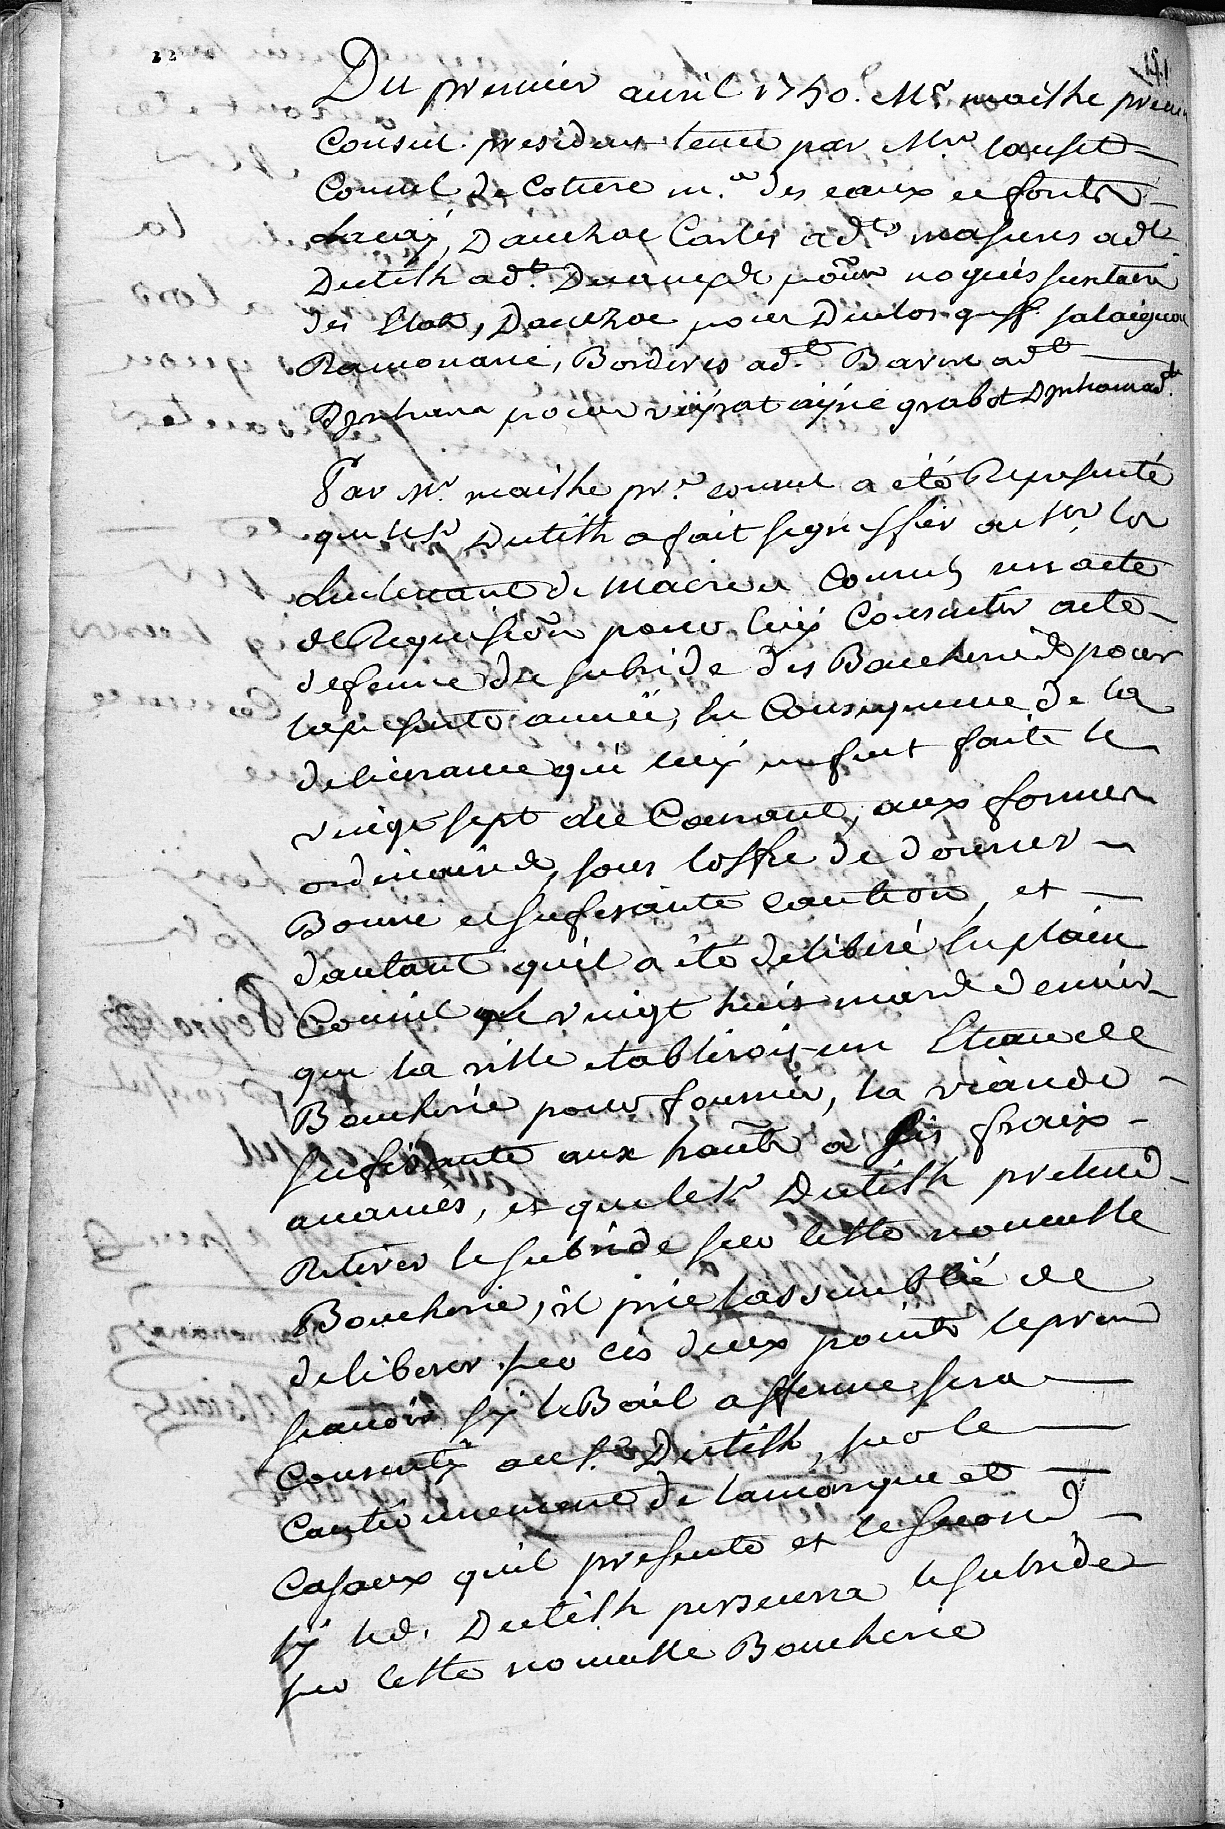 Du premier auril 1750. Mr. maithe premier
Consul president tenu par Mr.
Consul de Cotiere m.e des eaux et forets
Lacay, Dauezac Carles ad.t masures ad.t
Dutilh ad.t pour noguès sindic
des Etats, Dauezac pour Duclos greff. salaignac
Ramonane, Borderes ad.t Barue ad.t
pour veyrat ayné grabot
Par Mr. maithe pr.r consul a été Representé
que le Sr Dutilh a fait signiffier a Mrs les
Lieutenant de Maire et Consuls un acte
de Requision pour luy Consentir acte
deferme du subside des Boucheries pour
lapresente année, en Consequence de la
deliurance qui luy en fut faite le
vingt sept du Courant, aux formes
ordinaires, sous loffre de donner
Bonne et sufisante caution, et
dautant quil a été deliberé en plain
Conseil le vingt huit mars dernier
que la ville etabliroit un Etau de
Boucherie pour fournir, la viande
sufisante aux habts a ses fraix
auancés, et que le Sr Dutilh pretend
Retirer le subside sur cette nouuelle
Boucherie, il prie lassemblée de
deliberer sur ces deux points le premr
scauoir sy le Bail afferme sera
Consenty au Sr Dutilh, sur le
Cautionnement de lamarque et
Casaux quil presente et le second
sy led. Dutilh perseuera le subside
sur cette nouuelle Boucherie